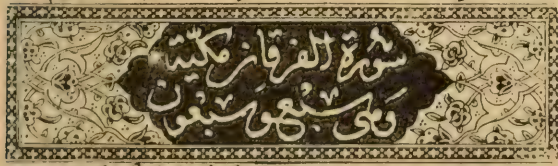 سورة الفرقان مكية
وهى سبع وسبعون